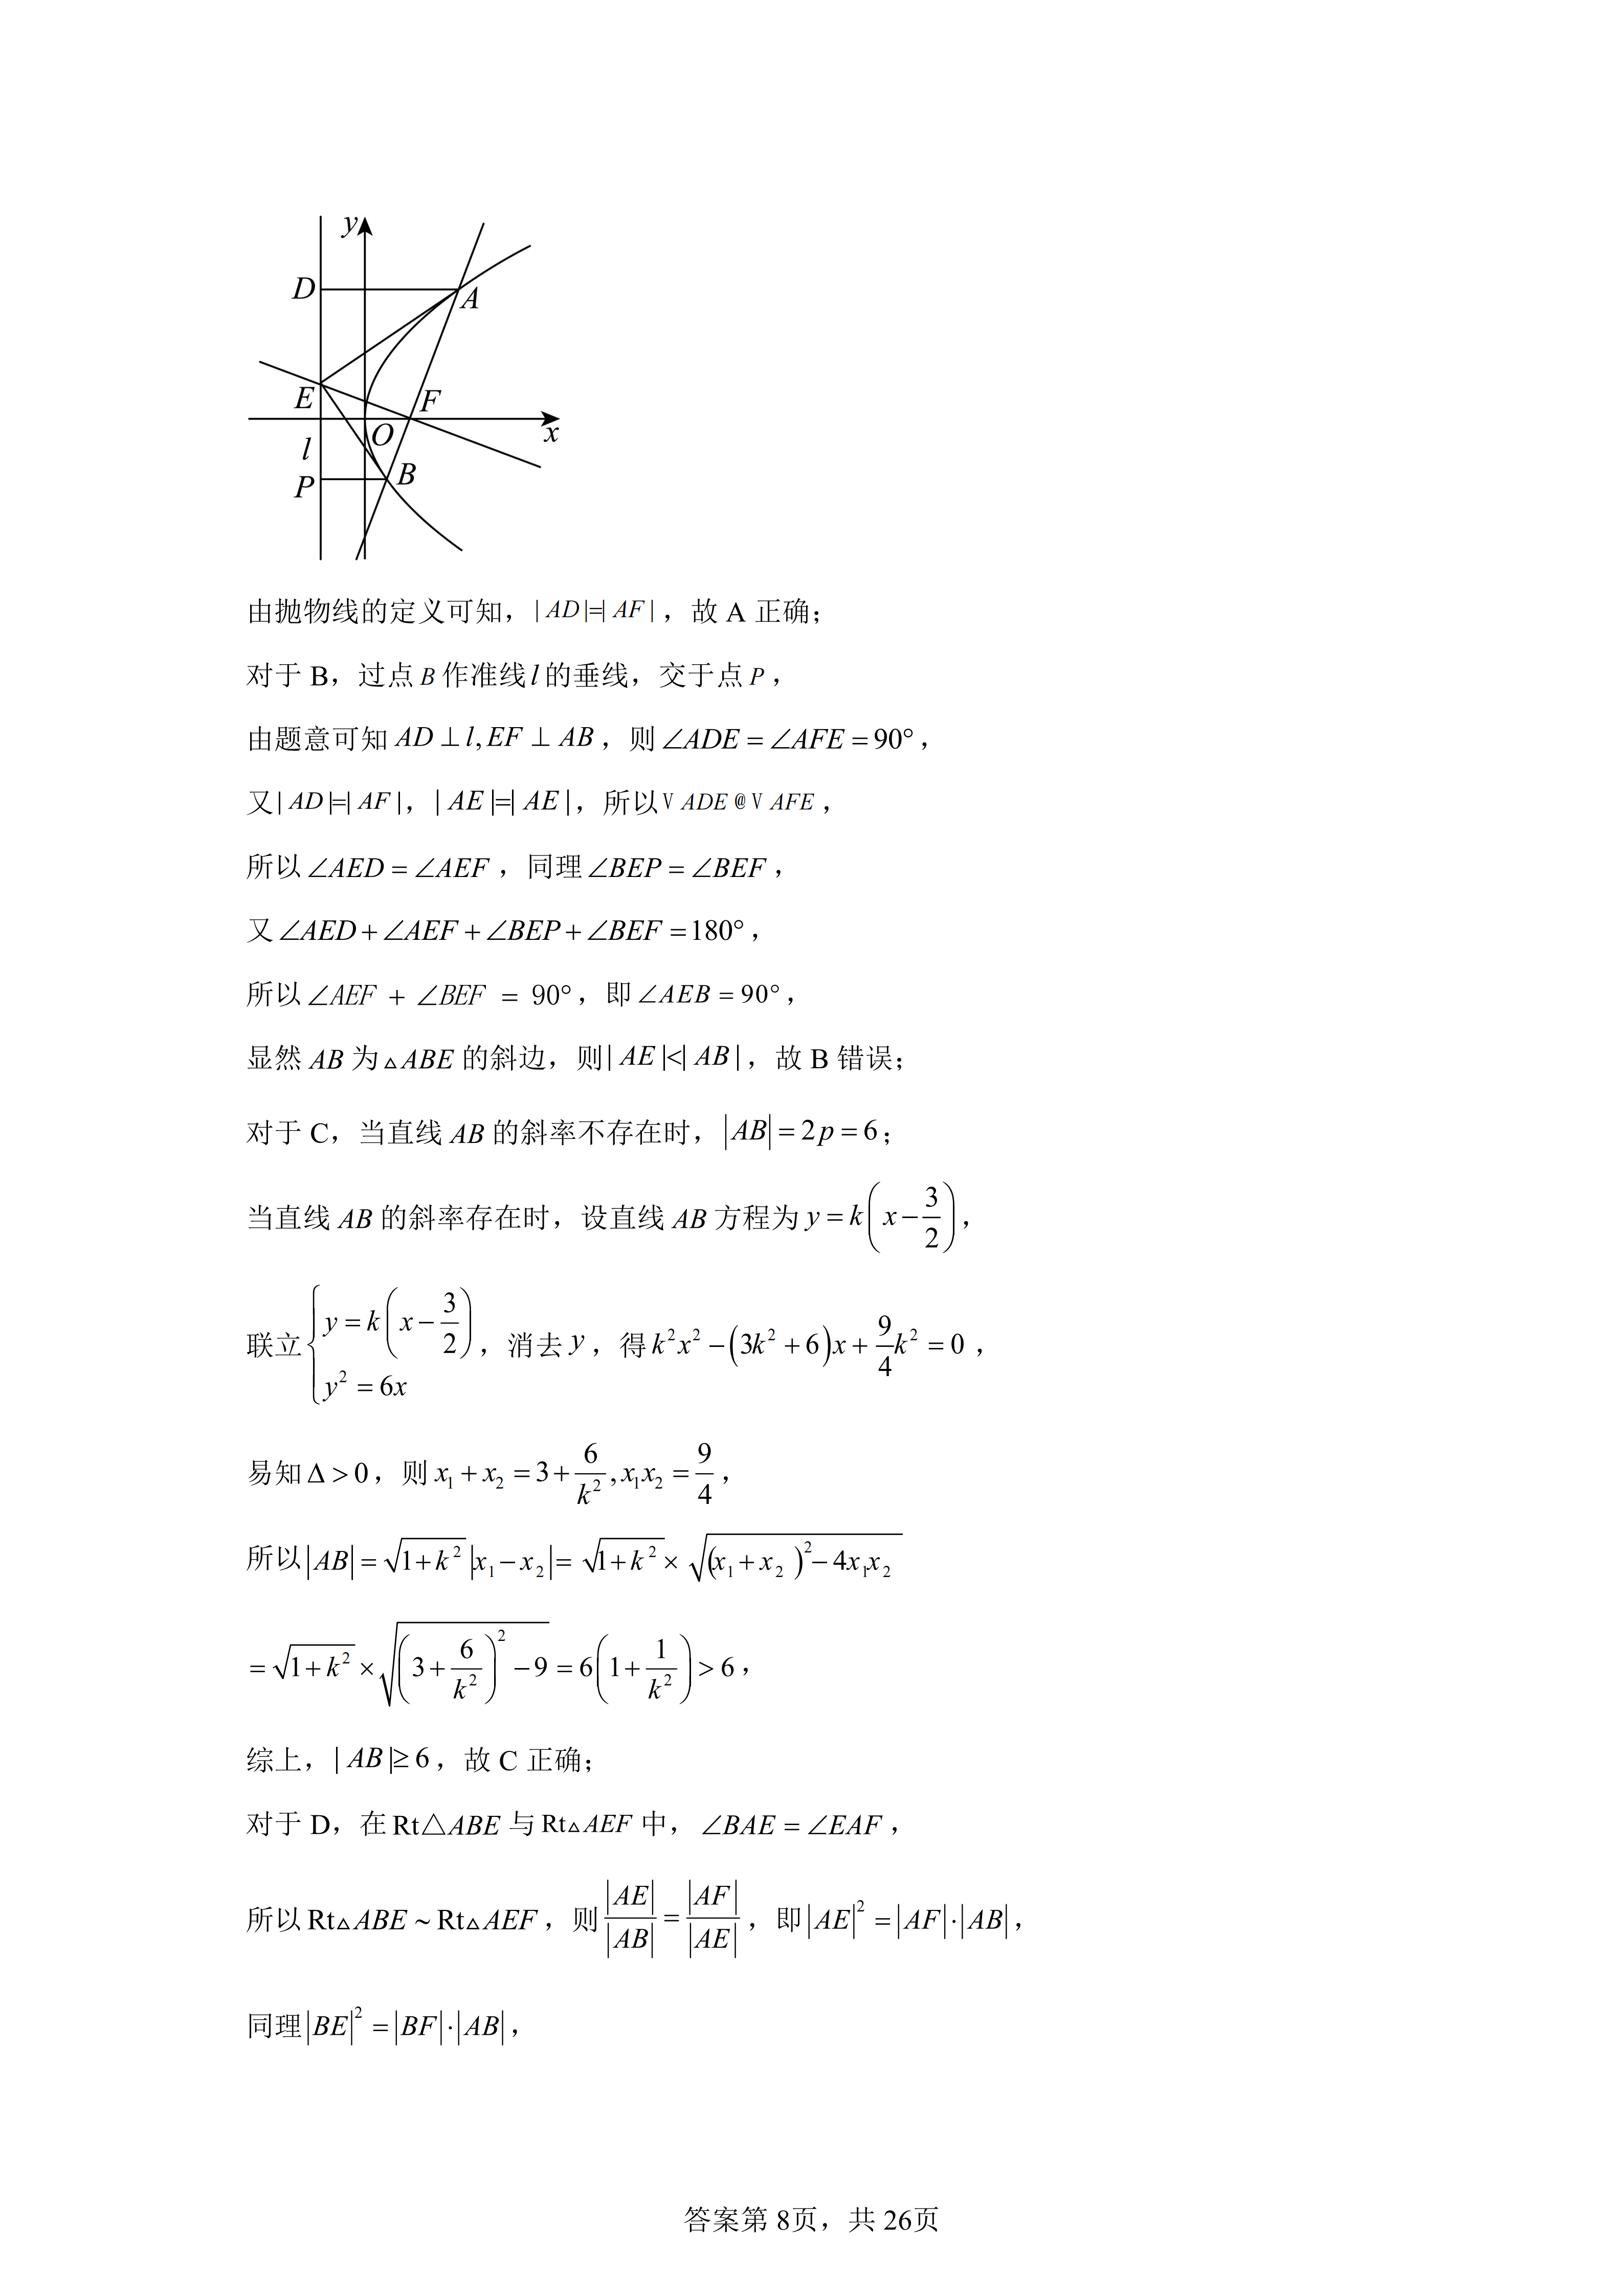 y
D
A
E
F
O
x
l
B
P
由抛物线的定义可知，| AD |=| AF |，故 A 正确；
对于 B，过点 B 作准线 l 的垂线，交于点 P，
由题意可知 AD ⊥ l, EF ⊥ AB，则 ∠ADE = ∠AFE = 90°，
又| AD |=| AF |，| AE |=| AE |，所以 V ADE @ V AFE，
所以 ∠AED = ∠AEF，同理 ∠BEP = ∠BEF，
又 ∠AED + ∠AEF + ∠BEP + ∠BEF = 180°，
所以 ∠AEF + ∠BEF = 90°，即 ∠AEB = 90°，
显然 AB 为 △ABE 的斜边，则| AE |<| AB |，故 B 错误；
对于 C，当直线 AB 的斜率不存在时，|AB| = 2p = 6；
当直线 AB 的斜率存在时，设直线 AB 方程为 y = k(x − 3/2)，
联立 { y = k(x − 3/2) y² = 6x，消去 y，得 k²x² − (3k² + 6)x + 9/4 k² = 0，
易知 Δ > 0，则 x₁ + x₂ = 3 + 6/k², x₁x₂ = 9/4，
所以 |AB| = √(1+k²) |x₁ − x₂| = √(1+k²) × √((x₁ + x₂)² − 4x₁x₂)
= √(1+k²) × √((3 + 6/k²)² − 9) = 6(1 + 1/k²) > 6，
综上，| AB |≥ 6，故 C 正确；
对于 D，在 Rt△ABE 与 Rt△AEF 中，∠BAE = ∠EAF，
所以 Rt△ABE ~ Rt△AEF，则 |AE|/|AB| = |AF|/|AE|，即 |AE|² = |AF|·|AB|，
同理 |BE|² = |BF|·|AB|，
答案第 8页，共 26页